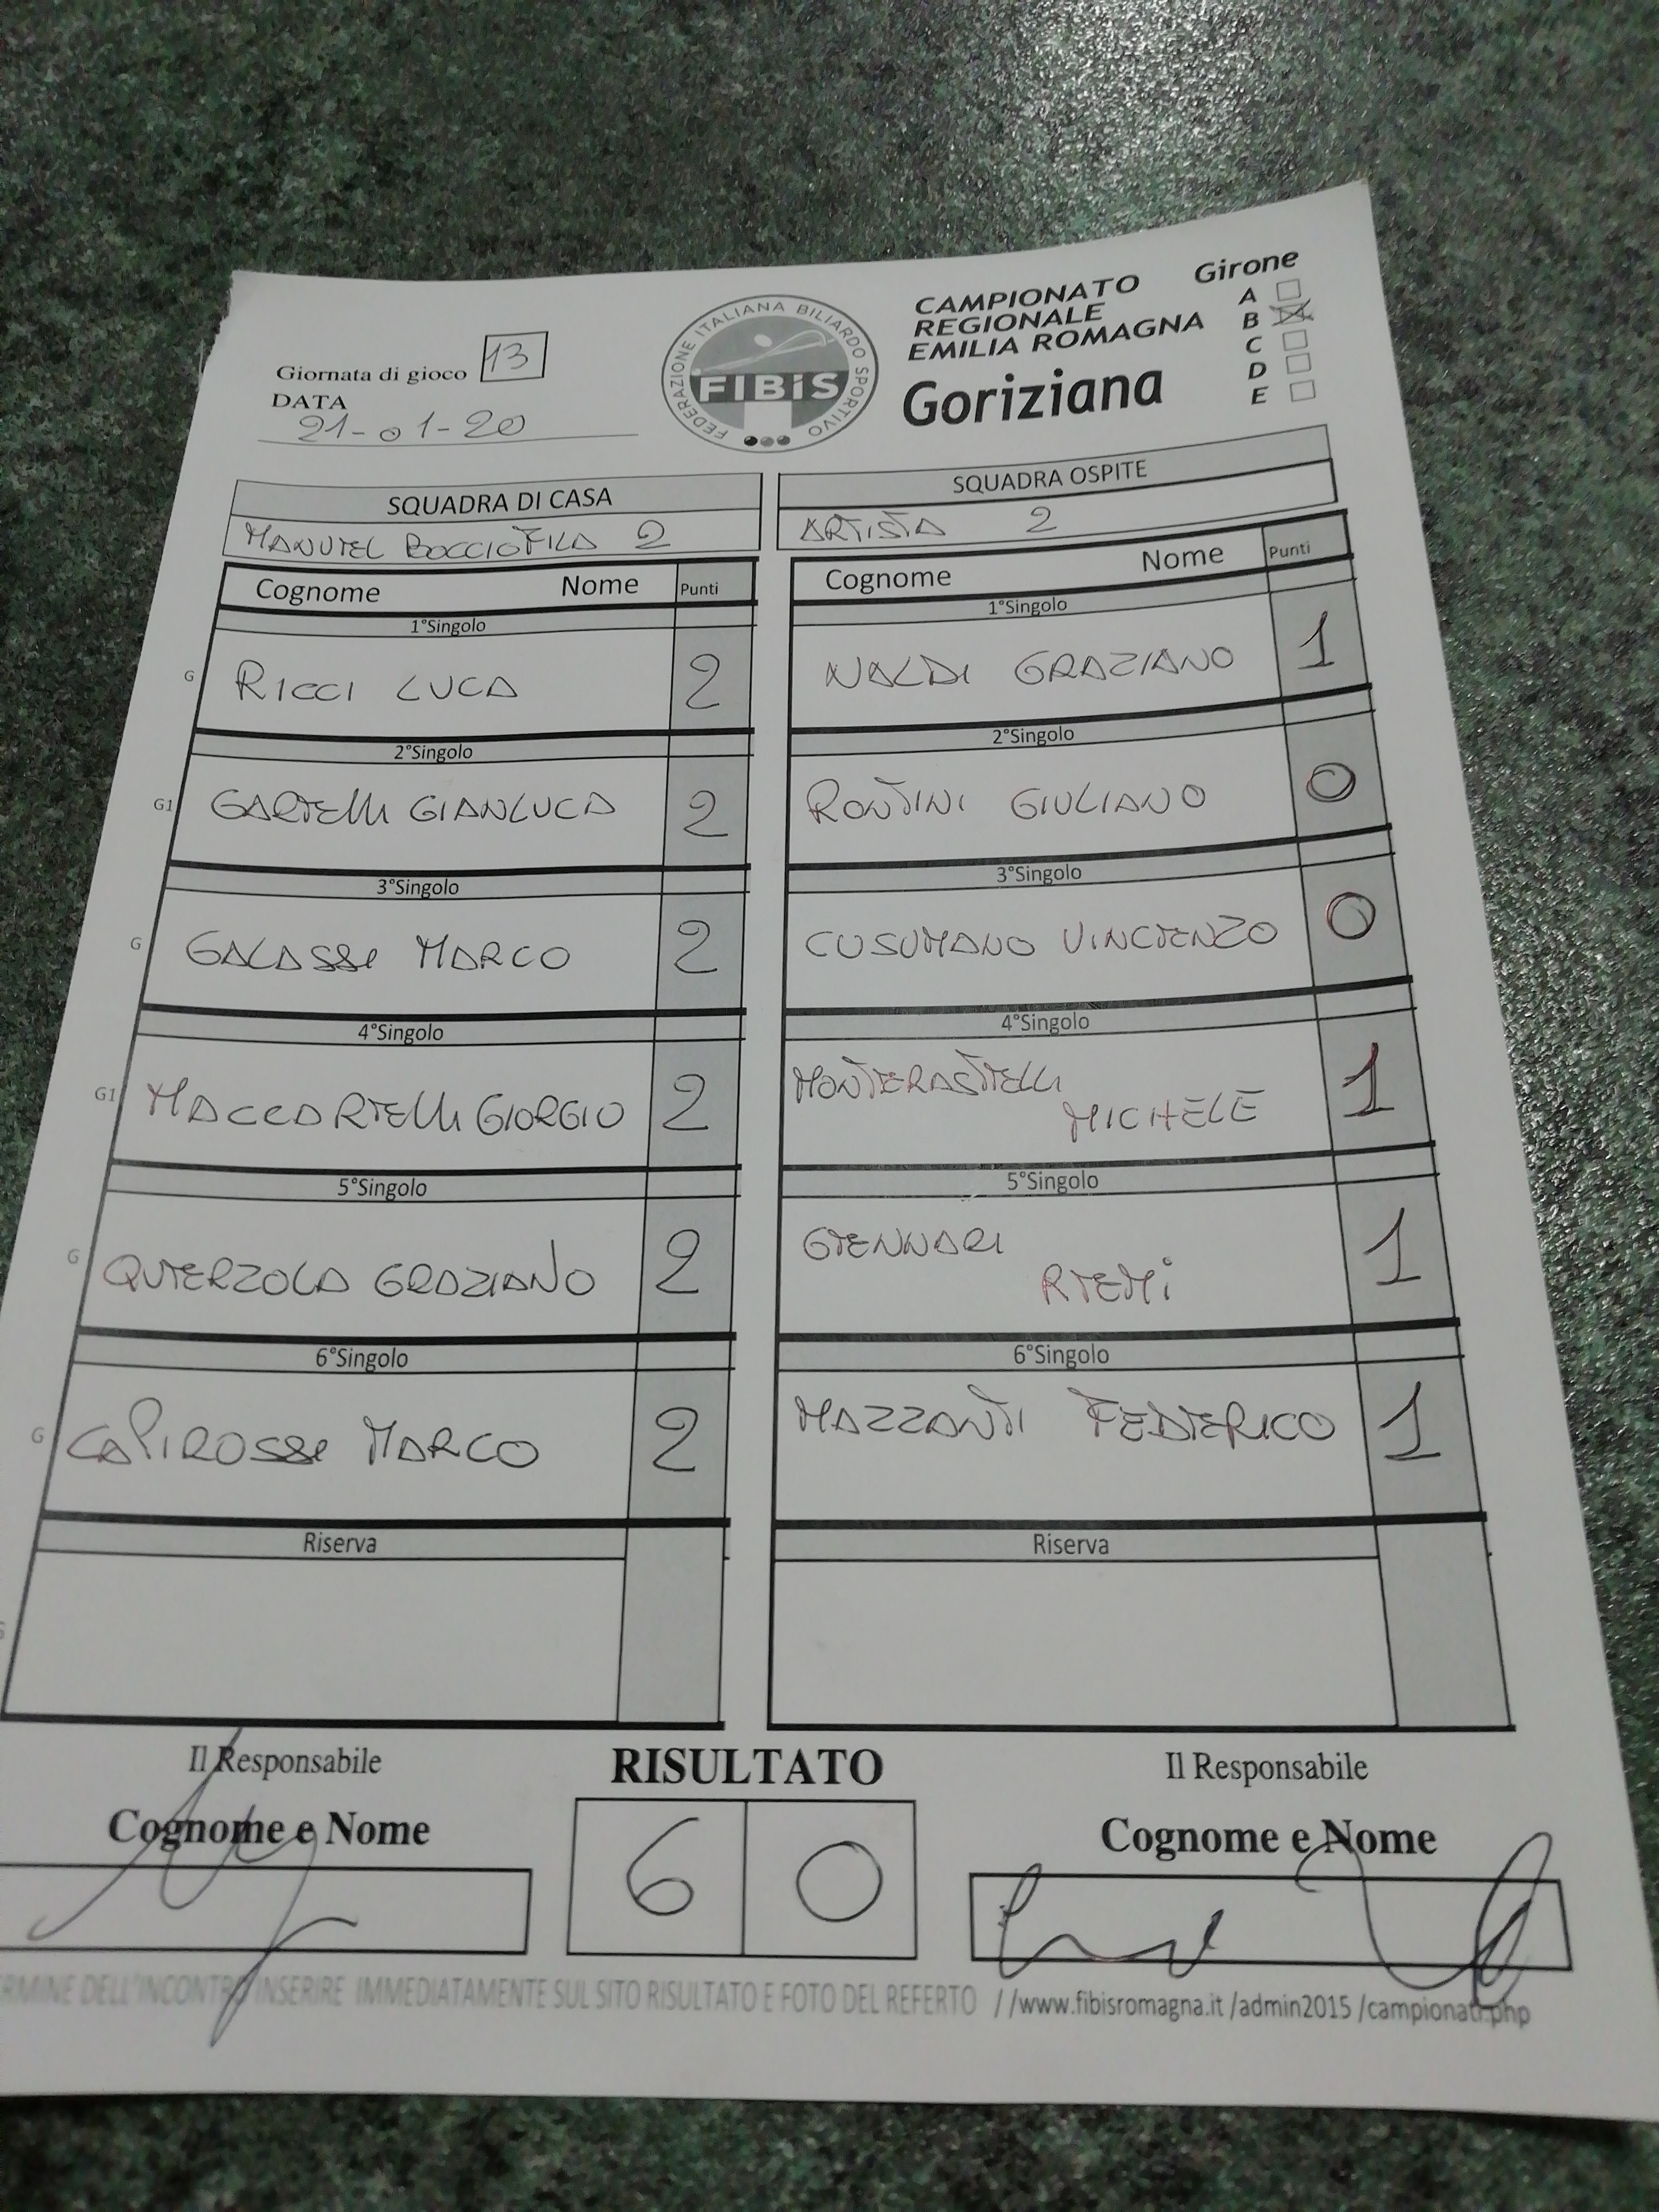 Giornata di gioco 13
DATA
21-01-20
FEDERAZIONE ITALIANA BILIARDO SPORTIVO
FIBiS
CAMPIONATO
REGIONALE
EMILIA ROMAGNA
Goriziana
Girone
A
B
C
D
E
SQUADRA DI CASA
MANUEL BOCCIOFILA 2
Cognome Nome Punti
1°Singolo
G RICCI LUCA 2
2°Singolo
G1 GARTELLI GIANLUCA 2
3°Singolo
G GALASSI MARCO 2
4°Singolo
G1 MACCARTELLI GIORGIO 2
5°Singolo
G QUERZOLA GRAZIANO 2
6°Singolo
G CAPIROSSI MARCO 2
Riserva
SQUADRA OSPITE
ARTISTA 2
Cognome Nome Punti
1°Singolo
NALDI GRAZIANO 1
2°Singolo
RONTINI GIULIANO 0
3°Singolo
CUSUMANO VINCENZO 0
4°Singolo
MONTERASTELLI
MICHELE 1
5°Singolo
GENNARI
REMI 1
6°Singolo
MAZZANTI FEDERICO 1
Riserva
Il Responsabile
Cognome e Nome
RISULTATO
6 0
Il Responsabile
Cognome e Nome
ERMINE DELL'INCONTRO INSERIRE IMMEDIATAMENTE SUL SITO RISULTATO E FOTO DEL REFERTO //www.fibisromagna.it /admin2015 /campionati.php